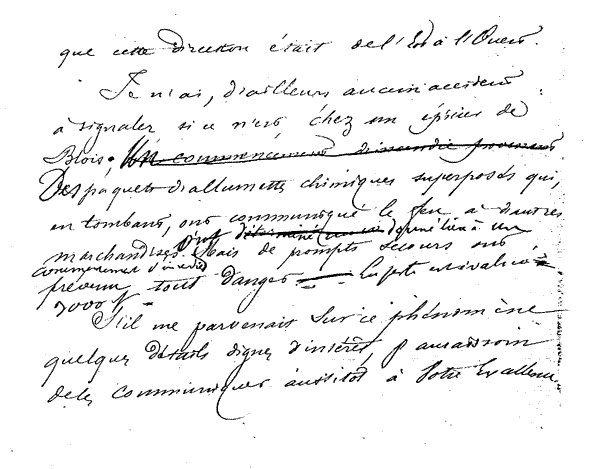 que cette direction était de l'Est à l'Ouest.
Je n'ai, d'ailleurs aucun accident
à signaler si ce n'est chez un épicier de
Blois. Un commencement d'incendie provenant
Des paquets d'allumettes chimiques superposés qui,
en tombant, ont communiqué le feu à d'autres
marchandises ont déterminé un donné lieu à un
commencement d'incendie Mais de prompts secours ont
prévenu tout danger La perte est évaluée à
7000 f
S'il me parvenait sur ce phénomène
quelques détails dignes d'intérêt, j'aurai soin
de les communiquer aussitôt à Votre Excellence